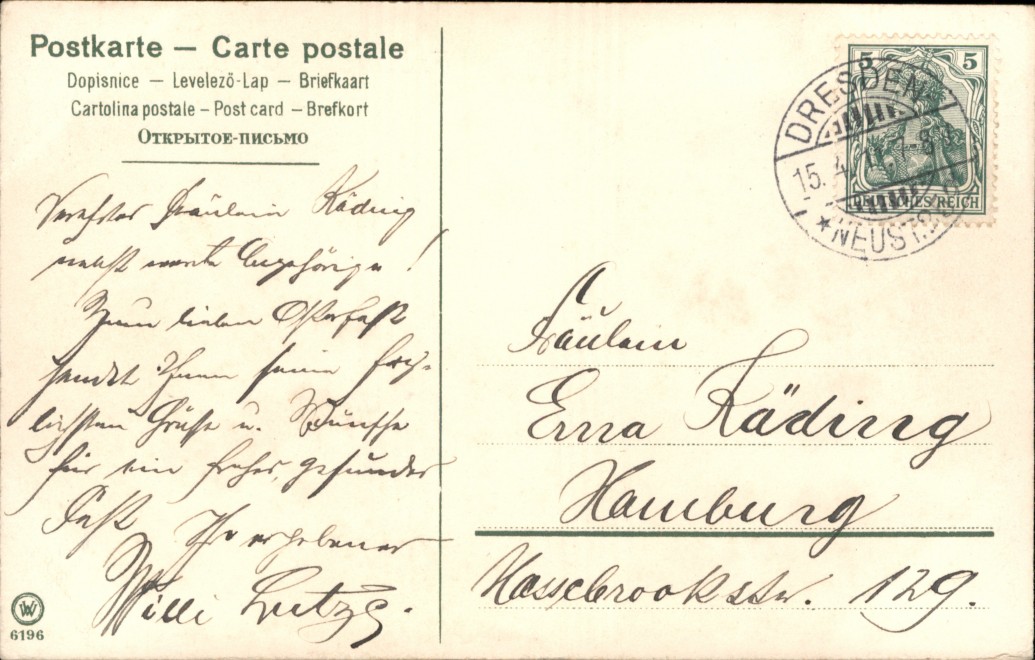 Postkarte — Carte postale
Dopisnice — Levelező-Lap — Briefkaart
Cartolina postale – Post card — Brefkort
Открытое-письмо
Verehrtes Fräulein Käding
nebst werte Angehörige!
Zum lieben Osterfest
sendet Ihnen seine herz-
lichsten Grüße u. Wünsche
für ein frohes, gesundes
Fest Ihr ergebener
Willi Lutze.
6196
5 5
DEUTSCHES REICH
DRESDEN-
15.4.11. 7-8
* NEUST.
Fräulein
Erna Käding
Hamburg
Hasselbrookstr. 129.